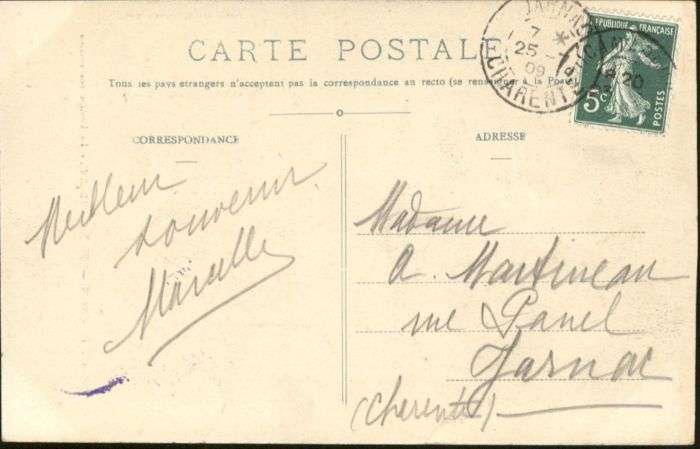 CARTE POSTALE
Tous les pays étrangers n'acceptent pas la correspondance au recto (se renseigner à la Poste)
CORRESPONDANCE
ADRESSE
Meilleur
souvenir
Marcelle
Madame
A. Martineau
rue Panel
Jarnac
(Cherente)
JARNAC
7
25
09
CHARENTE
RÉPUBLIQUE FRANÇAISE
5c
POSTES